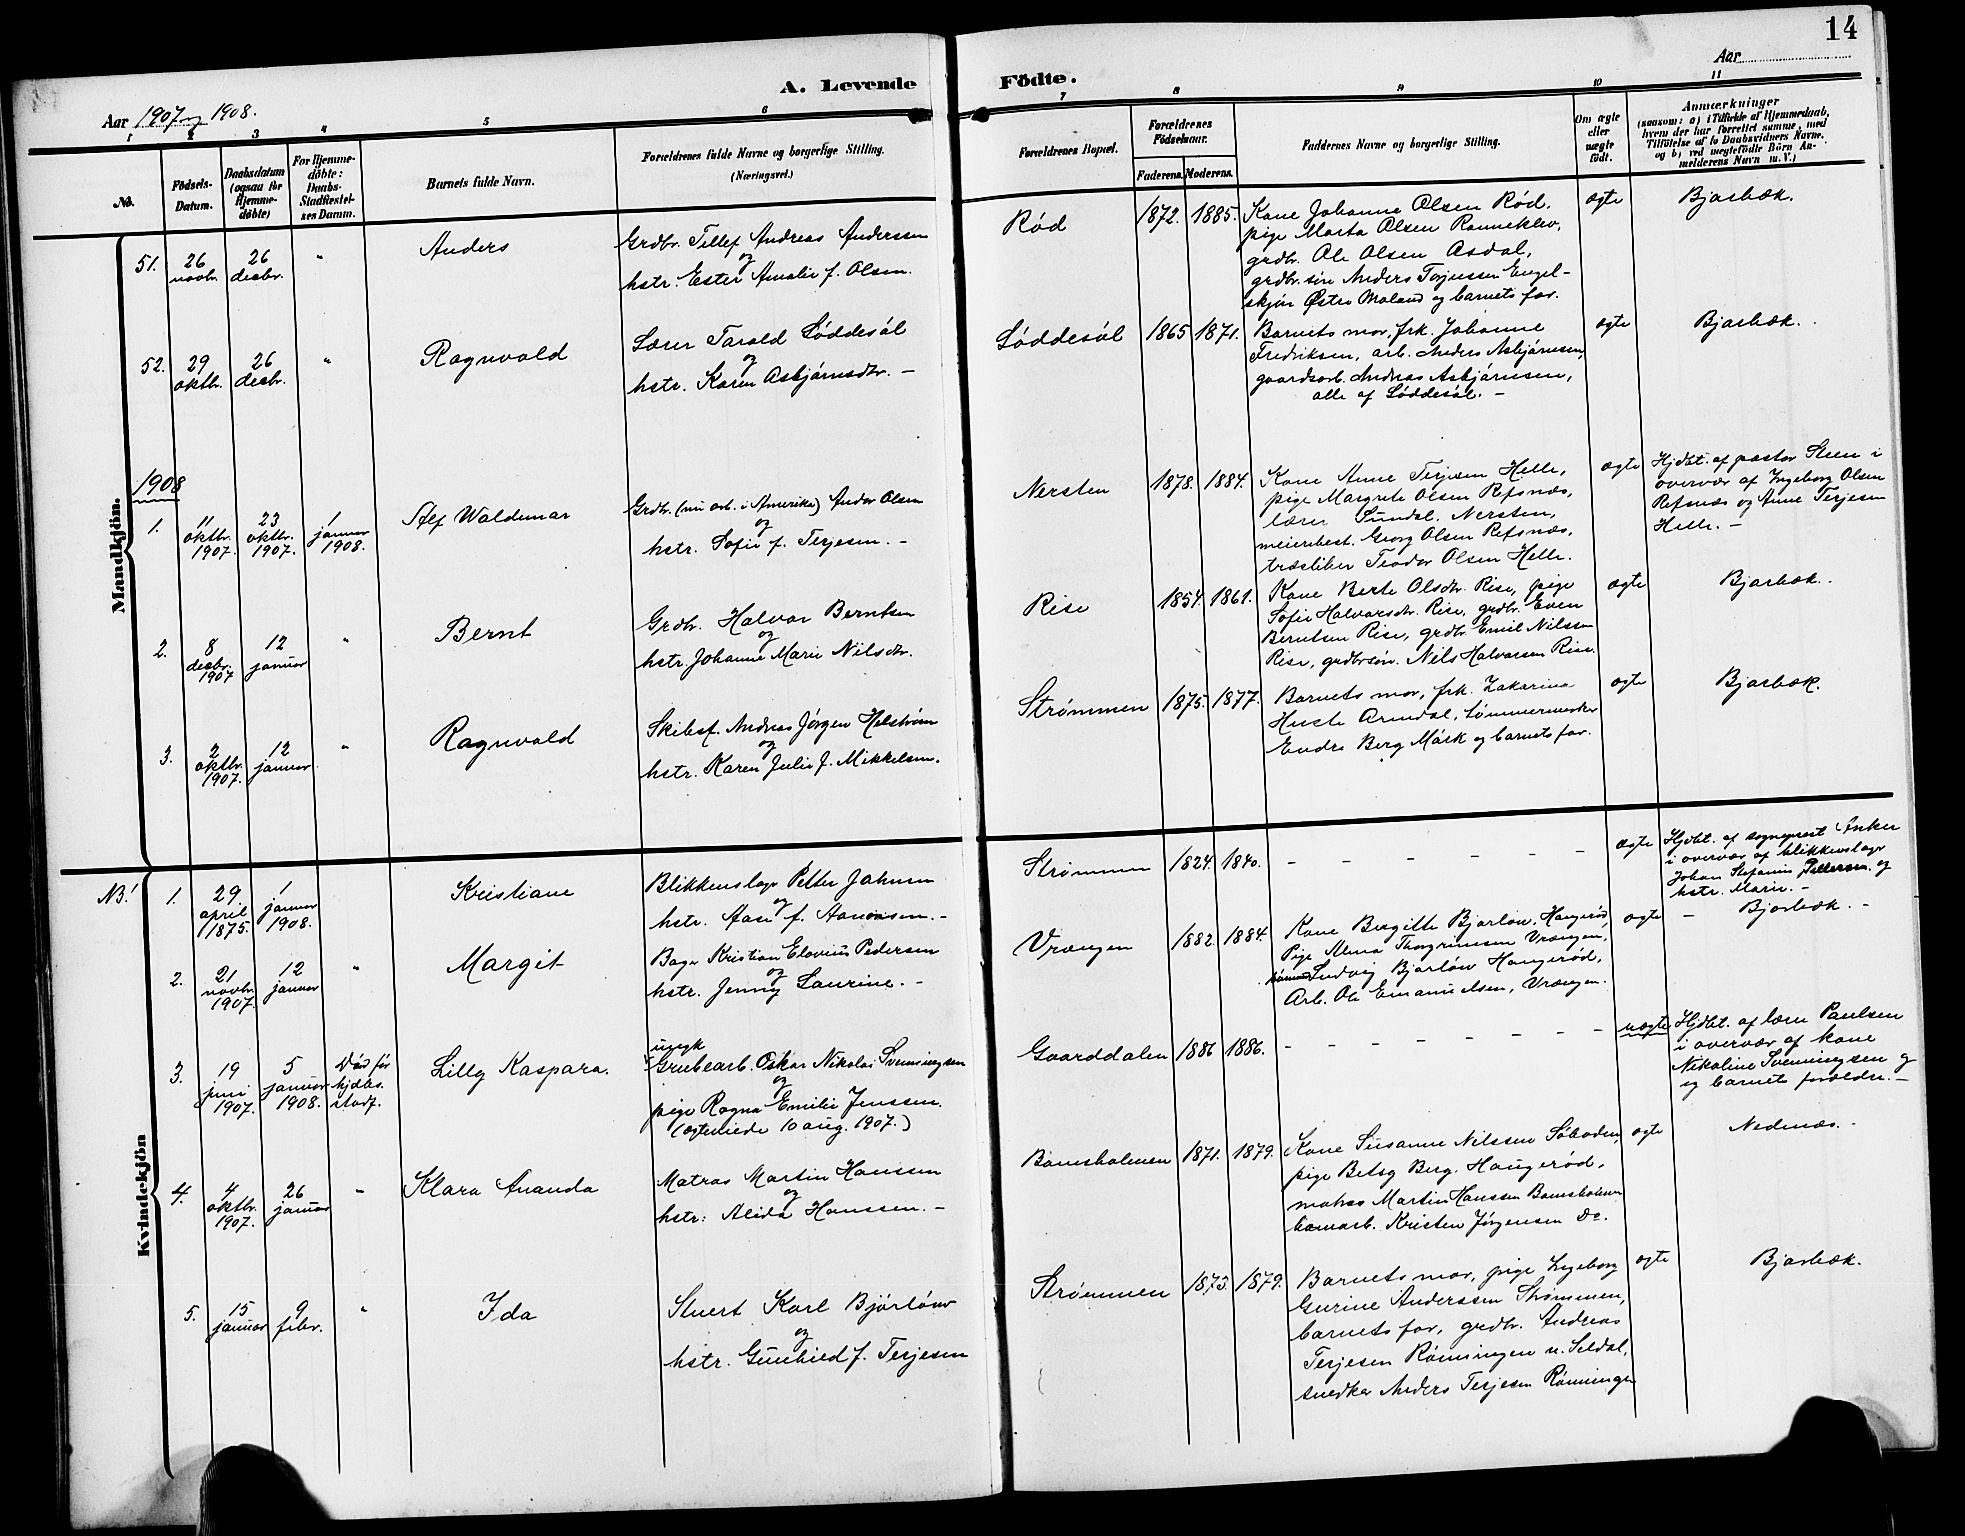 14
Aar
Aar 1907 og 1908.
A. Levende Födte.
1 2 3 4 5 6 7 8 9 10 11
No.
Födsels-Datum.
Daabsdatum (ogsaa for Hjemmedöbte)
For Hjemmedöbte: Daabs-Stadfæstelses Datum.
Barnets fulde Navn.
Forældrenes fulde Navne og borgerlige Stilling. (Næringsvei.)
Forældrenes Bopæl.
Forældrenes Födselsaar.
Faderens. Moderens.
Faddernes Navne og borgerlige Stilling.
Om ægte eller uægte födt.
Anmærkninger
(saasom: a) i Tilfælde af Hjemmedaab, hvem der har forrettet samme, med Tilföielse af to Daabsvidners Navne, og b) ved uægtefödte Börn Anmelderens Navn m. V.)
Mandkjön.
51. 26 novbr. 26 desbr. "
Anders
Grdbr. Tellef Andreas Anderssen
og
hstr. Ester Amalie f. Olsen.
Rød 1872. 1885.
Kone Johanne Olsen Rød,
pige Marta Olsen Ronneklev,
grdbr. Ole Olsen Asdal,
grdbr. søn Anders Torjussen Engel-
skjøn Østre Moland og barnets far.
ægte
Bjorbæk.
52. 29 oktbr. 26 desbr. "
Ragnvald
Lærer Tarald Løddesøl
og
hstr. Karen Asbjørnsdtr. -
Løddesøl 1865 1871.
Barnets mor, frk. Johanne
Fredriksen, arb. Anders Asbjørnsen,
gaardsarb. Andreas Asbjørnsen,
alle af Løddesøl. -
ægte
Bjorbæk.
1908
1. 11 oktbr. 1907. 23 oktbr. 1907. 1 januar 1908.
Alf Waldemar
Grdbr. (nu arb. i Amerika) Andor Olsen
og
hstr. Sofie f. Terjesen. -
Nersten 1878. 1884.
Kone Anne Terjesen Helle,
pige Margrete Olsen Refsnæs,
lærer Sundal. Nersten,
meieribest. Georg Olsen Refsnæs,
træsliber Teodor Olsen Helle.
ægte
Hjdbt. af pastor Steen i
overvær af Ingeborg Olsen
Refsnæs og Anne Terjesen
Helle. -
2. 8 desbr. 1907 12 januar "
Bernt
Grdbr. Halvor Berntsen
og
hstr. Johanne Marie Nilsdtr.
Rise 1854. 1861.
Kone Berte Olsdtr. Rise, pige
Sofie Halvorsdtr. Rise, grdbr. Even
Berntsen Rise, grdbr. Emil Nilssen
Rise, grdbrsøn. Nils Halvorsen Rise.
ægte
Bjorbæk.
3. 2 oktbr. 1907. 12 januar "
Ragnvald
Skibsf. Andreas Jørgen Helstrøm
og
hstr. Karen Julie f. Mikkelsen.
Strømmen 1875. 1877.
Barnets mor, frk. Zakarina
Arendal, tømmermerker
Endre Berg Mørk og barnets far.
ægte
Bjorbæk.
Kvindekjön
NB! 1. 29. april 1875. 1 januar 1908.
Kristiane
Blikkenslager Petter Jahnsen
og
hstr. Aase f. Aanonsen. -
Strømmen 1824. 1840.
- - - - - -
ægte
Hjdbt. af sogneprest Anker
i overvær af blikkenslager
Johan Stefanus Pettersen og
hstr. Marie. -
2. 21 novbr. 1907. 12 januar "
Margit
Bager Kristian Elovius Pedersen
og
hstr. Jenny Laurine. -
Vrængen 1882. 1884.
Kone Bergitte Bjorløw, Haugerød,
Pige Alma Thorgrimsen Vrængen,
Ludvig Bjorløw Haugerød,
Arb. Ole Emanuelsen, Vrængen.
ægte
- Bjorbæk. -
3. 19 juni 1907. 5 januar 1908. Død før hjdbs. stadf.
Lilly Kaspara.
ungk
Grubearb. Oskar Nikolai Svenningsen
og
pige Ragna Emilie Jenssen.
(ægteviede 10 aug. 1907.)
Gaarddalen 1886 1886.
- - - - - - - -
uægte
Hjdbt. af lærer Paulsen
i overvær af kone
Nikoline Svenningsen og
og barnets forældre. -
4. 4 oktbr. 1907. 26 januar -
Klara Ananda
Matros Martin Hanssen
og
hstr: Alida Hanssen. -
Bomsholmen 1871. 1879.
Kone Susanne Nilssen Søboden,
pige Betsy Berg. Haugerød,
matros Martin Hanssen Bomsholmen
bomarb. Kristen Jørgensen Do.
ægte
Nedenæs. -
5. 15 januar 9 febr. "
Ida
Stuert Karl Bjørløw
og
hstr. Gunhild f. Terjesen
Strømmen 1873. 1879.
Barnets mor, pige Ingeborg
Gurine Anderssen Strømmen,
barnets far, grdbr. Andreas
Terjesen Rønningen u. Seldal,
snedker Anders Terjesen Rønningen
ægte
Bjorbæk.